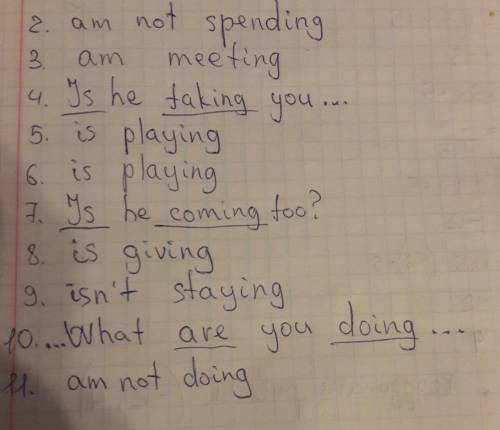 2. am not spending
3. am meeting
4. Is he taking you...
5. is playing
6. is playing
7. Is he coming too?
8. is giving
9. isn't staying
10. ...What are you doing...
11. am not doing